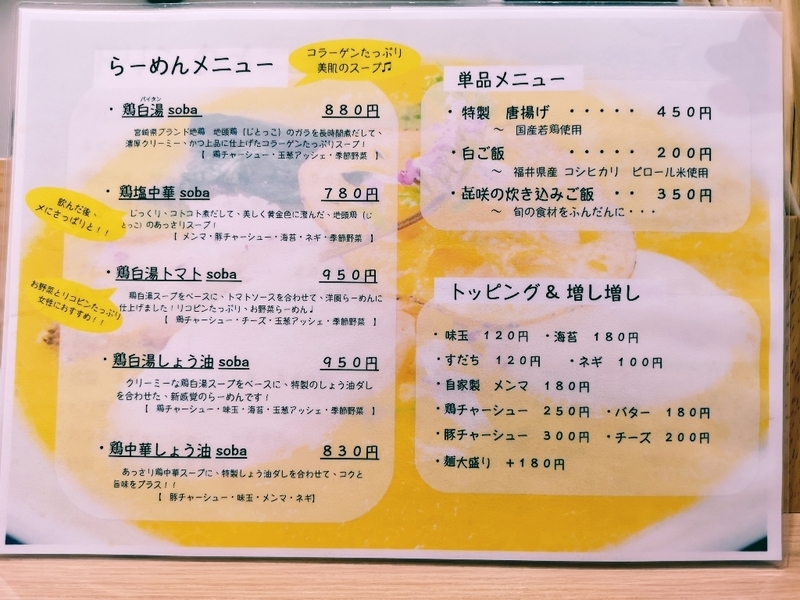 らーめんメニュー
コラーゲンたっぷり
美肌のスープ♫
パイタン
・鶏白湯 soba　８８０円
宮崎県ブランド地鶏　地頭鶏（じとっこ）のガラを長時間煮だして、
濃厚クリーミー、かつ上品に仕上げたコラーゲンたっぷりスープ！
【　鶏チャーシュー・玉葱アッシェ・季節野菜　】
飲んだ後、
〆にさっぱりと！！
・鶏塩中華 soba　７８０円
じっくり、コトコト煮だして、美しく黄金色に澄んだ、地頭鶏（じ
とっこ）のあっさりスープ！
【　メンマ・豚チャーシュー・海苔・ネギ・季節野菜　】
お野菜とリコピンたっぷり
女性におすすめ！！
・鶏白湯トマト soba　９５０円
鶏白湯スープをベースに、トマトソースを合わせて、洋風らーめんに
仕上げました！リコピンたっぷり、お野菜らーめん♩
【　鶏チャーシュー・チーズ・玉葱アッシェ・季節野菜　】
・鶏白湯しょう油 soba　９５０円
クリーミーな鶏白湯スープをベースに、特製のしょう油ダレ
を合わせた、新感覚のらーめんです！
【　鶏チャーシュー・味玉・海苔・玉葱アッシェ・季節野菜　】
・鶏中華しょう油 soba　８３０円
あっさり鶏中華スープに、特製しょう油ダレを合わせて、コクと
旨味をプラス！！
【　豚チャーシュー・味玉・メンマ・ネギ】
単品メニュー
・特製　唐揚げ　・・・・・４５０円
～　国産若鶏使用
・白ご飯　・・・・・２００円
～　福井県産 コシヒカリ　ピロール米使用
・㐂咲の炊き込みご飯　・・３５０円
～　旬の食材をふんだんに・・・
トッピング & 増し増し
・味玉　１２０円　・海苔　１８０円
・すだち　１２０円　・ネギ　１００円
・自家製　メンマ　１８０円
・鶏チャーシュー　２５０円　・バター　１８０円
・豚チャーシュー　３００円　・チーズ　２００円
・麺大盛り　＋１８０円